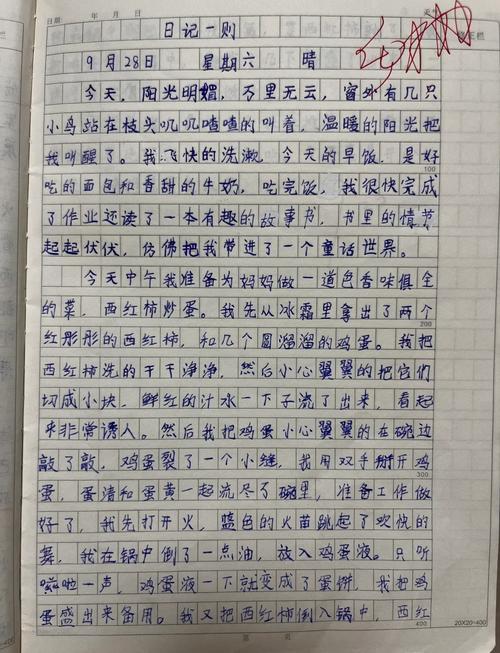 日期 年 月 日
日记一则
9月28日 星期六 晴
今天，阳光明媚，万里无云，窗外有几只
小鸟站在枝头叽叽喳喳的叫着，温暖的阳光把
我叫醒了。我飞快的洗漱，今天的早饭，是好
100
吃的面包和香甜的牛奶，吃完饭，我很快完成
了作业还读了一本有趣的故事书，书里的情节
起起伏伏，仿佛把我带进了一个童话世界。
今天中午我准备为妈妈做一道色香味俱全
的菜，西红柿炒蛋。我先从冰霜里拿出了两个
200
红彤彤的西红柿，和几个圆溜溜的鸡蛋。我把
西红柿洗的干干净净，然后小心翼翼的把它们
切成小块，鲜红的汁水一下子流了出来，看起
来非常诱人。然后我把鸡蛋小心翼翼的在碗边
敲了敲，鸡蛋裂了一个小缝，我用双手掰开鸡
300
蛋，蛋清和蛋黄一起流尽了碗里，准备工作做
好了，我先打开火，蓝色的火苗跳起了欢快的
舞，我在锅中倒了一点油，放入鸡蛋液。只听
啦一声，鸡蛋液一下就变成了蛋饼，我把鸡
蛋盛出来备用。我又把西红柿倒入锅中，西红
400
第 页
20X20=400